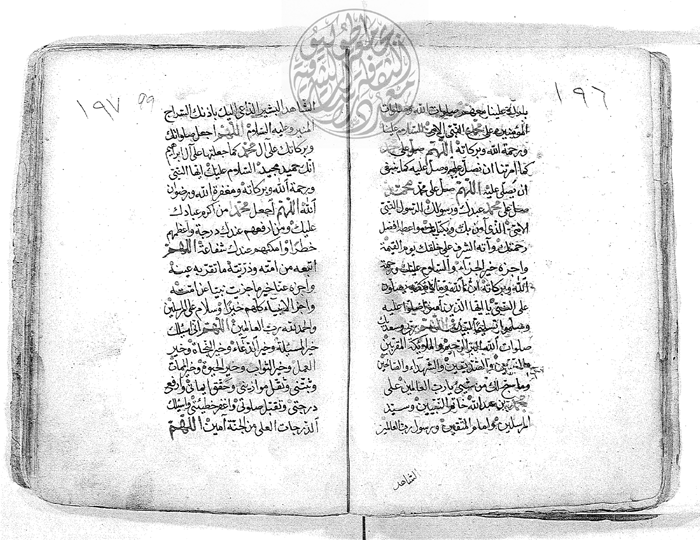 ١٩٦
ورحمة الله وبركاته اللهم صل على محمد
كما امرتنا ان نصلي عليه وصل عليه كما ينبغي
ان يصلى عليه اللهم صل على محمد
صل على محمد عبدك ورسولك النبي
الامي الذي آمن بك وبكتابك واعطه افضل
رحمتك وآته الشرف على خلقك يوم القيمة
واجزه خير الجزاء والسلام عليك ورحمة
الله وبركاته ان الله وملائكته يصلون
على النبي يا ايها الذين آمنوا صلوا عليه
وسلموا تسليما لبيك اللهم ربي وسعديك
صلوات الله البر الرحيم والملائكة المقربين
والنبيين والصديقين والشهداء والصالحين
وما سبح لك من شيء يا رب العالمين على
محمد بن عبد الله خاتم النبيين وسيد
المرسلين وامام المتقين ورسول رب العالمين
الشاهد
١٩٧
99
الشاهد البشير الداعي اليك باذنك السراج
المنير وعليه السلام اللهم اجعل صلواتك
وبركاتك على آل محمد كما جعلتها على آل ابراهيم
انك حميد مجيد السلام عليك ايها النبي
ورحمة الله وبركاته ومغفرة الله ورضوان
الله اللهم اجعل محمدا من اكرم عبادك
عليك ومن ارفعهم عندك درجة واعظمهم
خطرا وامكنهم عندك شفاعة اللهم
اتبعه من امته وذريته ما تقر به عينه
واجزه عنا خير ما جزيت نبيا عن امته
واجز الانبياء كلهم خيرا وسلام على المرسلين
والحمد لله رب العالمين اللهم اني اسئلك
خير المسئلة وخير الدعاء وخير النجاة وخير
العمل وخير الثواب وخير الحيوة وخير الممات
وثبتني وثقل موازيني وحقق ايماني وارفع
درجتي وتقبل صلوتي واغفر خطيئتي واسئلك
الدرجات العلى من الجنة آمين اللهم